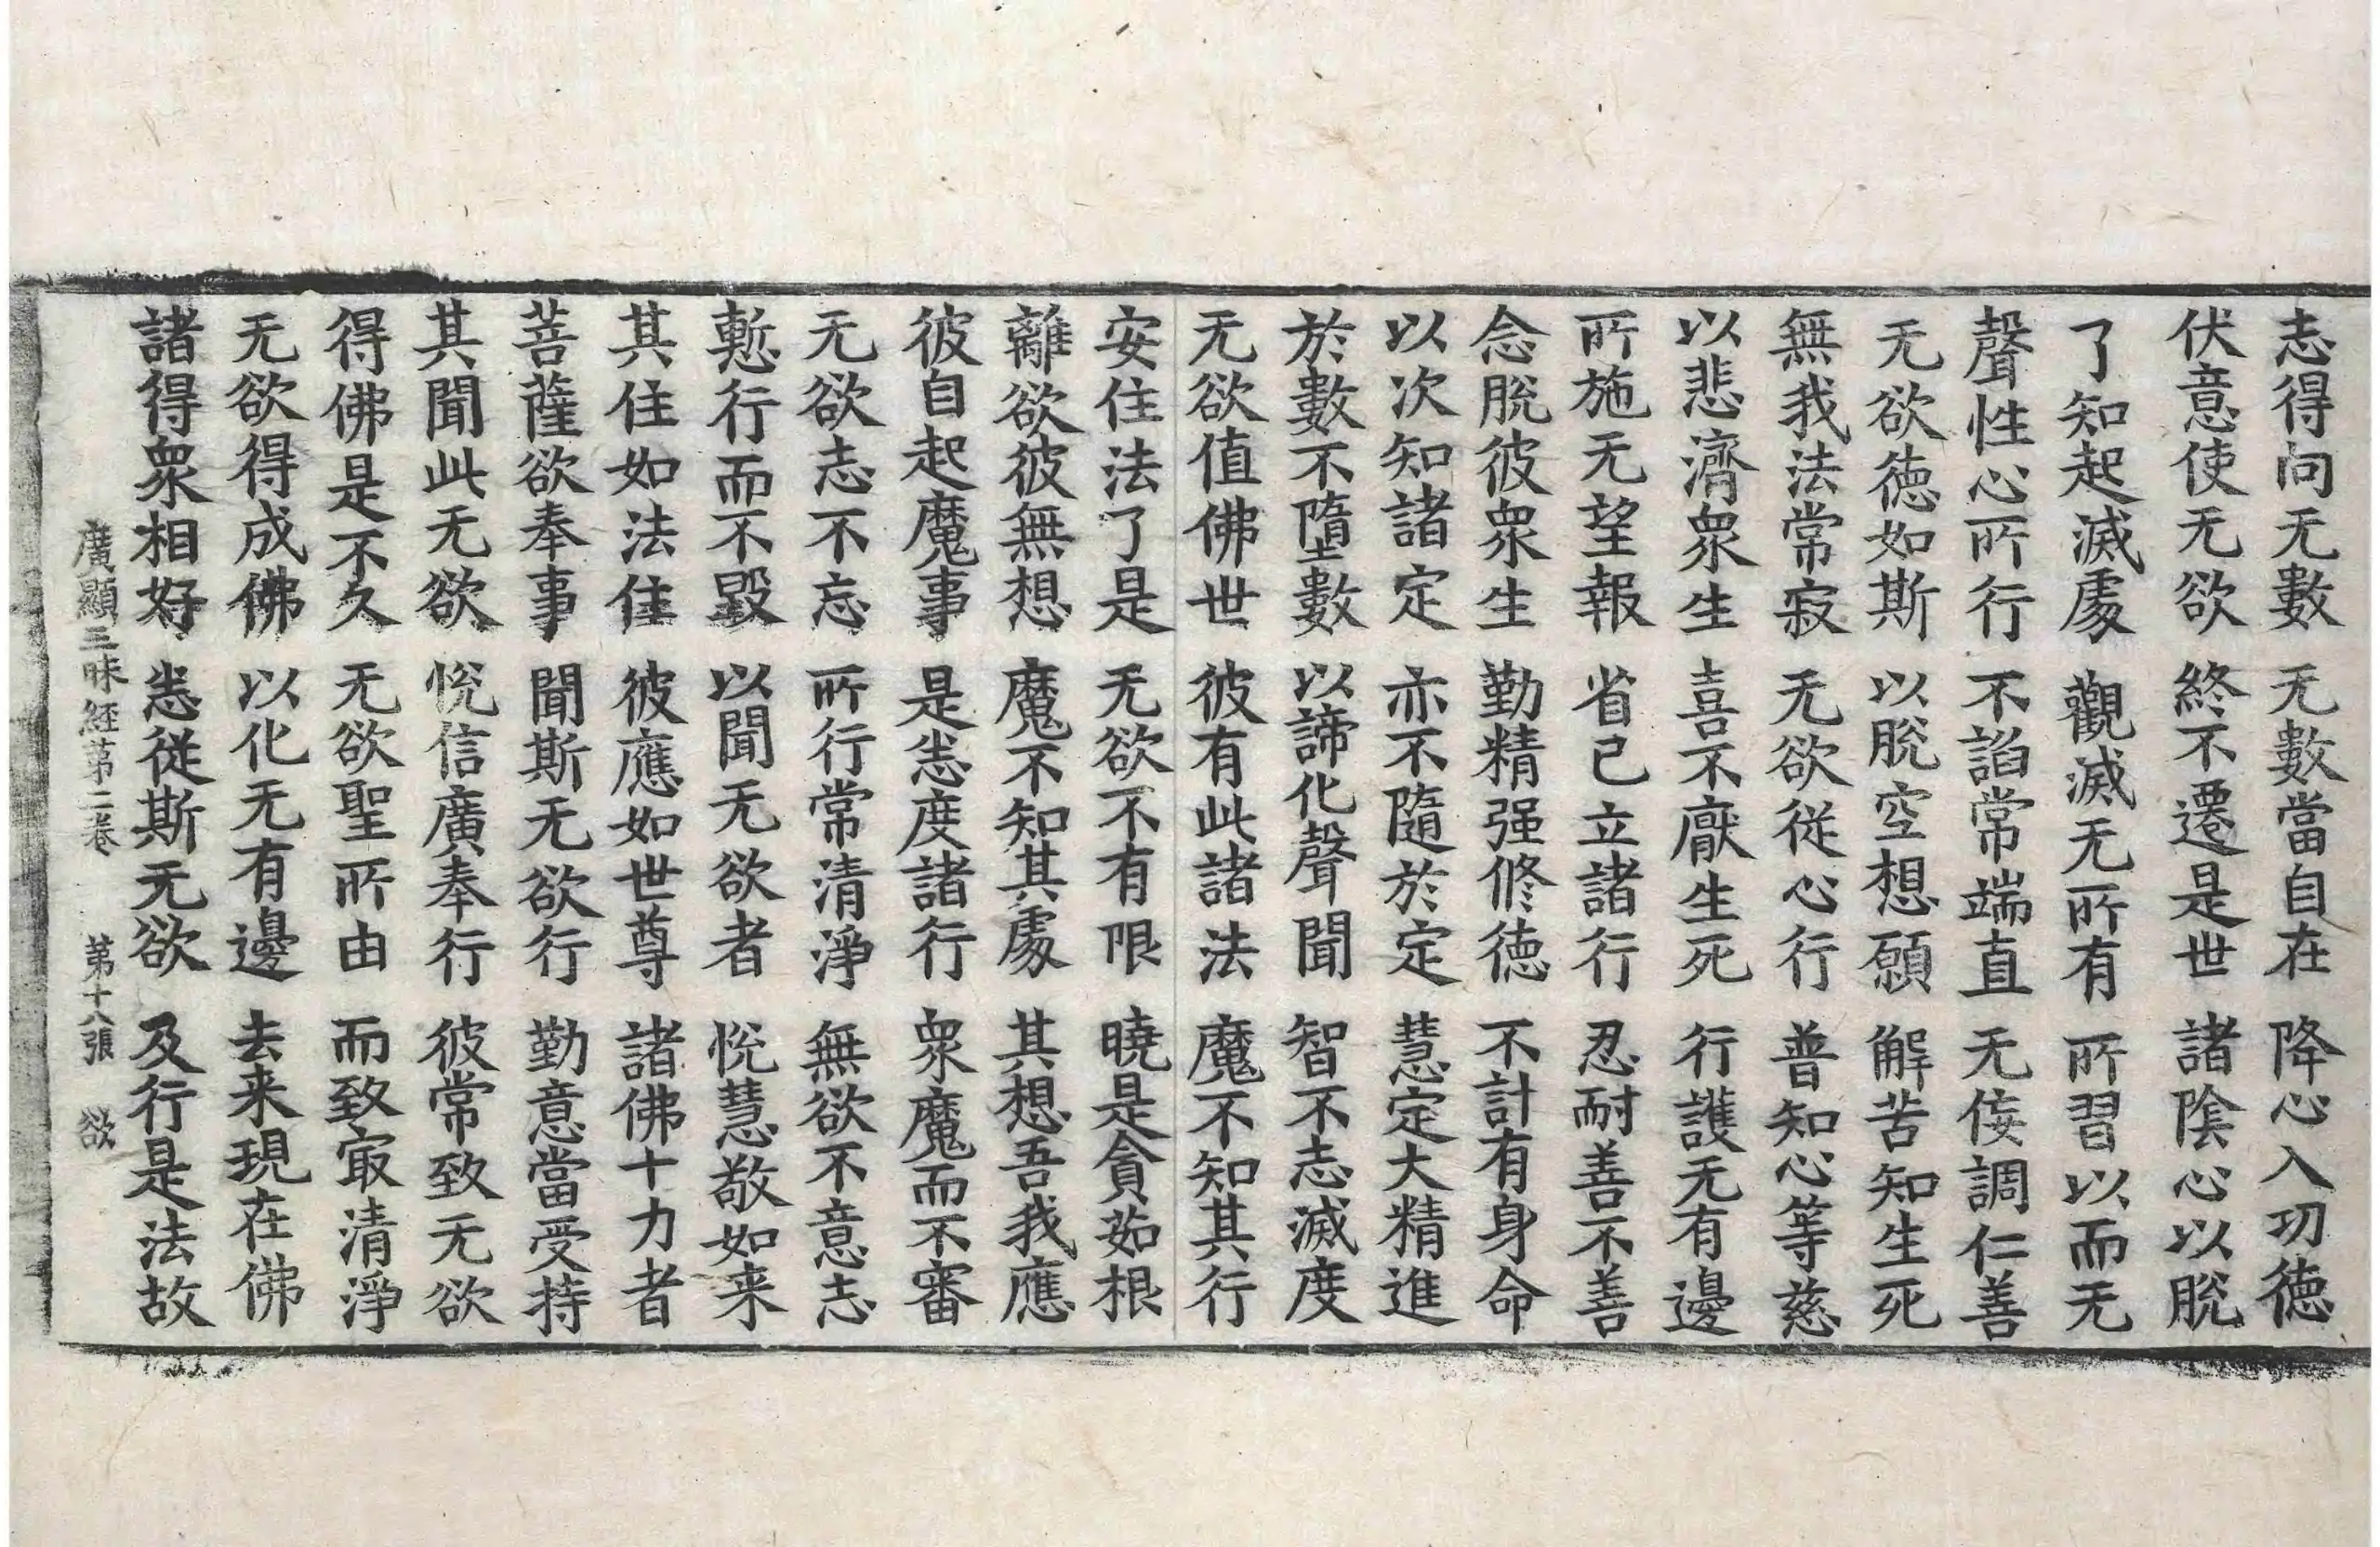 志得向无數 无數當自在 降心入功徳
伏意使无欲 終不遷是世 諸陰心以脫
了知起滅處 觀滅无所有 所習以而无
聲性心所行 不諂常端直 无侫調仁善
无欲徳如斯 以脫空想願 解苦知生死
無我法常寂 无欲從心行 普知心等慈
以悲濟衆生 喜不厭生死 行護无有邊
所施无望報 省已立諸行 忍耐善不善
念脫彼衆生 勤精强修徳 不計有身命
以次知諸定 亦不隨於定 慧定大精進
於數不墮數 以諦化聲聞 智不志滅度
无欲值佛世 彼有此諸法 魔不知其行
安住法了是 无欲不有限 曉是貪茹根
離欲彼無想 魔不知其處 其想吾我應
彼自起魔事 是恙度諸行 衆魔而不審
无欲志不忘 所行常清淨 無欲不意志
慙行而不毀 以聞无欲者 悅慧敬如来
其住如法住 彼應如世尊 諸佛十力者
菩薩欲奉事 聞斯无欲行 勤意當受持
其聞此无欲 悅信廣奉行 彼常致无欲
得佛是不久 无欲聖所由 而致冣清淨
无欲得成佛 以化无有邊 去来現在佛
諸得衆相好 恙從斯无欲 及行是法故
廣顯三昧經第二卷 第十八張 欲